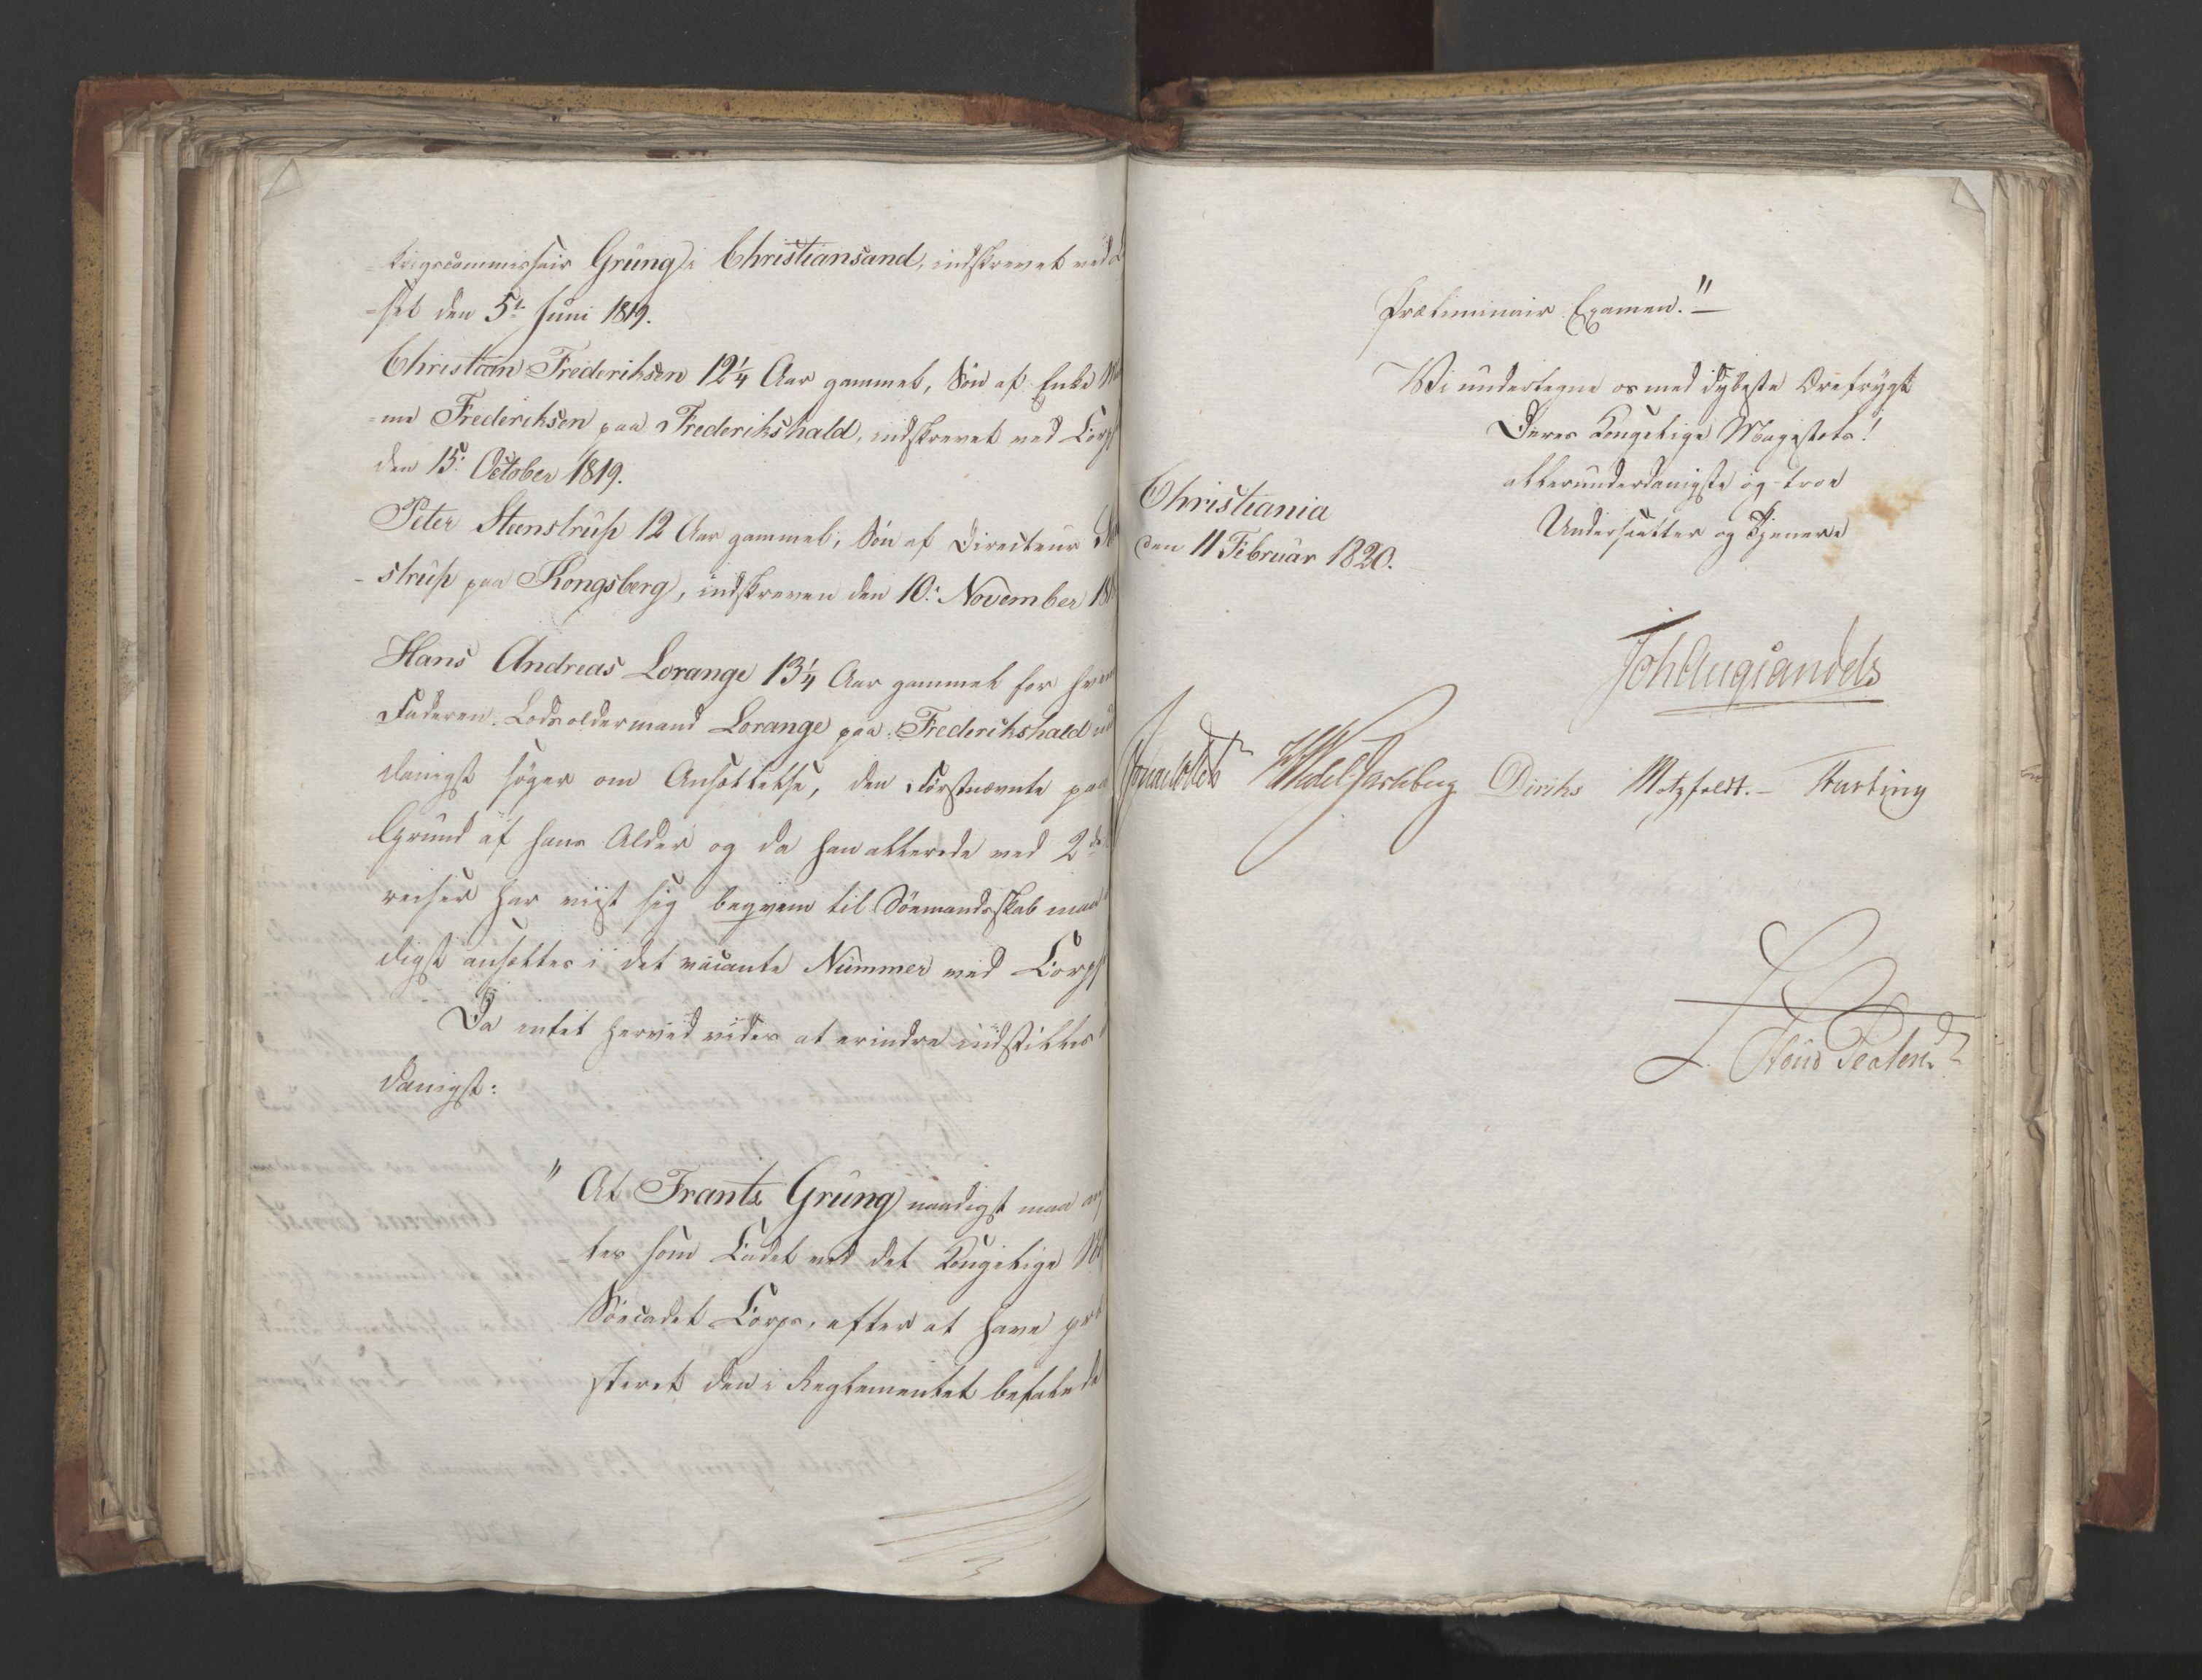 -krigscommissair Grüng i Christiansand, indskrevet ved
-set den 5te Juni 1819.
Christian Frederiksen 12¼ Aar gammel, Søn af Enke
-me Frederiksen paa Frederikshald, indskrevet ved Corps
den 15: October 1819.
Peter Steenstrüp 12 Aar gammel, Søn af Directeur
-strüp paa Kongsberg, indskreven den 10: November
Hans Andreas Lorange 13¼ Aar gammel for hvem
Faderen Lodsoldermand Lorange paa Frederikshald
danigst søger om Ansættelse, den Førstnævnte paa
Grund af hans Alder og da han allerede ved 2de
reiser har viist sig beqvem til Sømandsskab maa
digst ansættes i det vacante Nummer ved Corps
Da intet herved vides at erindre indstilles
danigst:
" At Frants Grüng naadigst maa
tes som Cadet ved det Kongelige
Søecadet Corps, efter at have
steret den i Reglementet befalede
Præliminair Examen." —
Vi undertegne os med dybeste Ærefrygt
Deres Kongelige Majestets!
allerunderdanigste og troe
Undersaatter og Tjenere
Christiania
den 11 Februar 1820.
Joh Aug Sandels
Jonas Collett Wedel Jarlsberg Diriks Motzfeldt. — Fasting